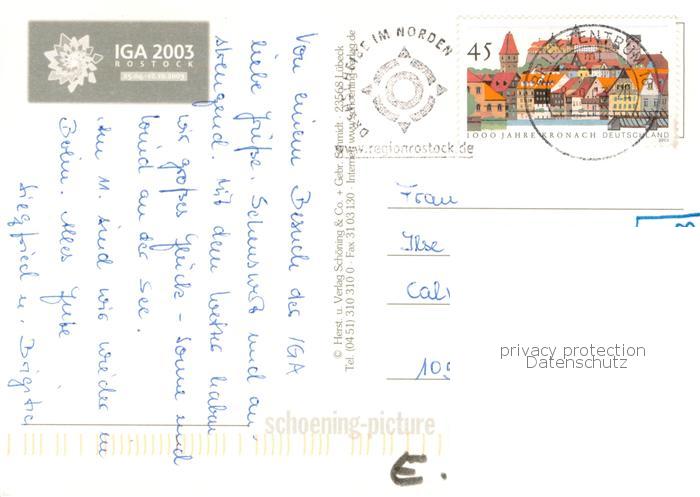 IGA 2003
ROSTOCK
25.04.-12.10.2003
Von einem Besuch der IGA
liebe Grüße. Sehenswert und an-
strengend. Mit dem Wetter haben
wir großes Glück - Sonne und
Wind an der See.
Am 11. sind wir wieder in
Berlin. Alles Gute
Siegfried u. Brigitte
© Herst. u. Verlag Schöning & Co. + Gebr. Schmidt · 23568 Lübeck
Tel. (04 51) 310 310 0 · Fax 31 03 130 · Internet www.schoening-verlag.de
IM NORDEN
www.regionrostock.de
45
1000 JAHRE KRONACH DEUTSCHLAND
2003
ZENTRUM
Frau
Ilse
Cal
10
privacy protection
Datenschutz
schoening-picture
E.